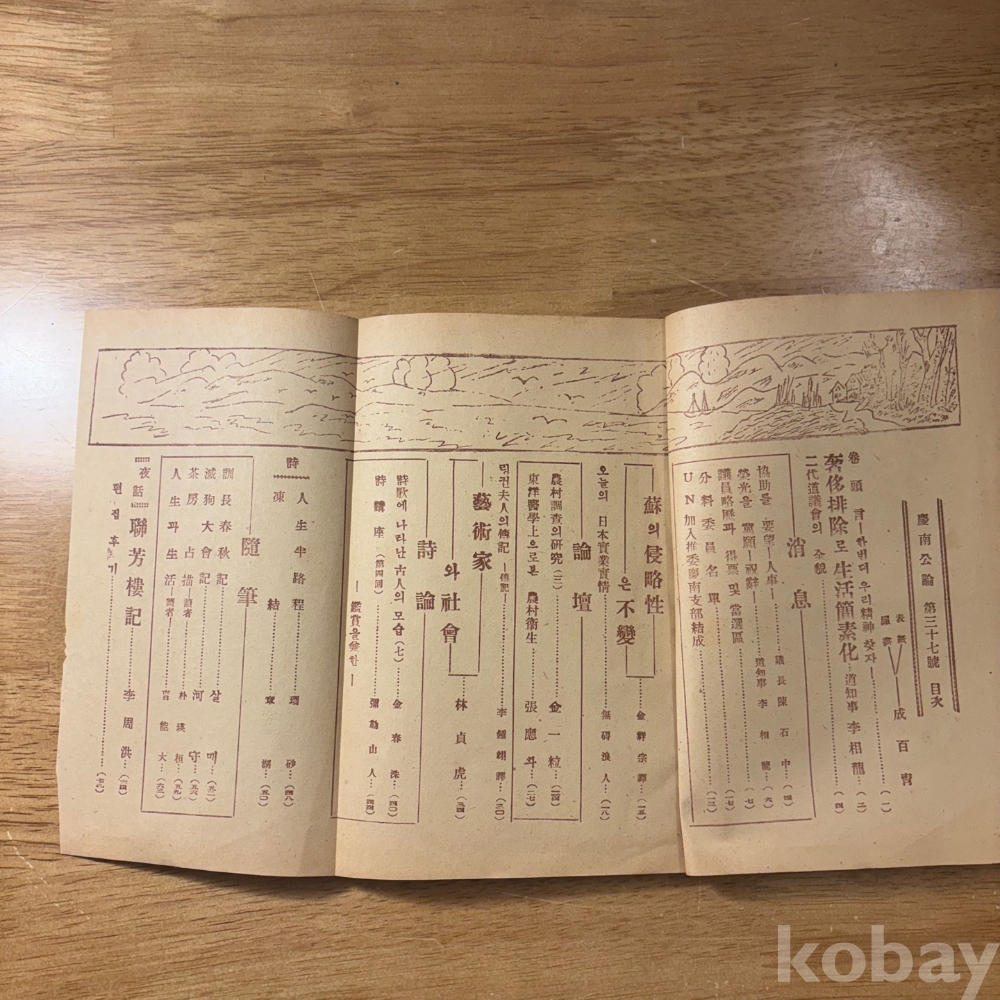 慶南公論 第三十七號 目次
表紙 成百冑
卷頭言—한번더 우리精神 찾자—(一)
奢侈排除로 生活簡素化 道知事 李相龍(二)
二代道議會의 全貌(四)
消息
協助를 要望—人車— 議長 陳石中(四)
榮光을 黨願—祝辭— 道知事 李相龍(六)
議員略歷과 得票 및 當選區(七)
分科委員名單(一七)
UN加入推委慶南支部結成(一三)
蘇의侵略性은不變 金祥宗譯(一五)
오늘의 日本實業實情 無碍浪人(一八)
論壇
農村調査의研究(二) 金一粒(二四)
東洋醫學上으로본 農村衛生 張應斗(二七)
夫人의傳記—傳記— 李 譯(三〇)
藝術家와社會 林貞虎(三四)
詩論
時歌에 나타난 古人의 모습(七) 金春洙(四〇)
時調講座(第四回) 彌勒山人(四四)
—鑑賞을爲한—
詩
人生半路程 砂(四八)
凍結 (五〇)
隨筆
訓長春秋記 살매(五二)
滅狗大會記 河守(五六)
茶房占描—讀者— 朴瑛桓(五九)
人生과生活—讀者— 能大(六三)
夜話 聯芳樓記 李周洪(六四)
편집후기(七九)
kobay